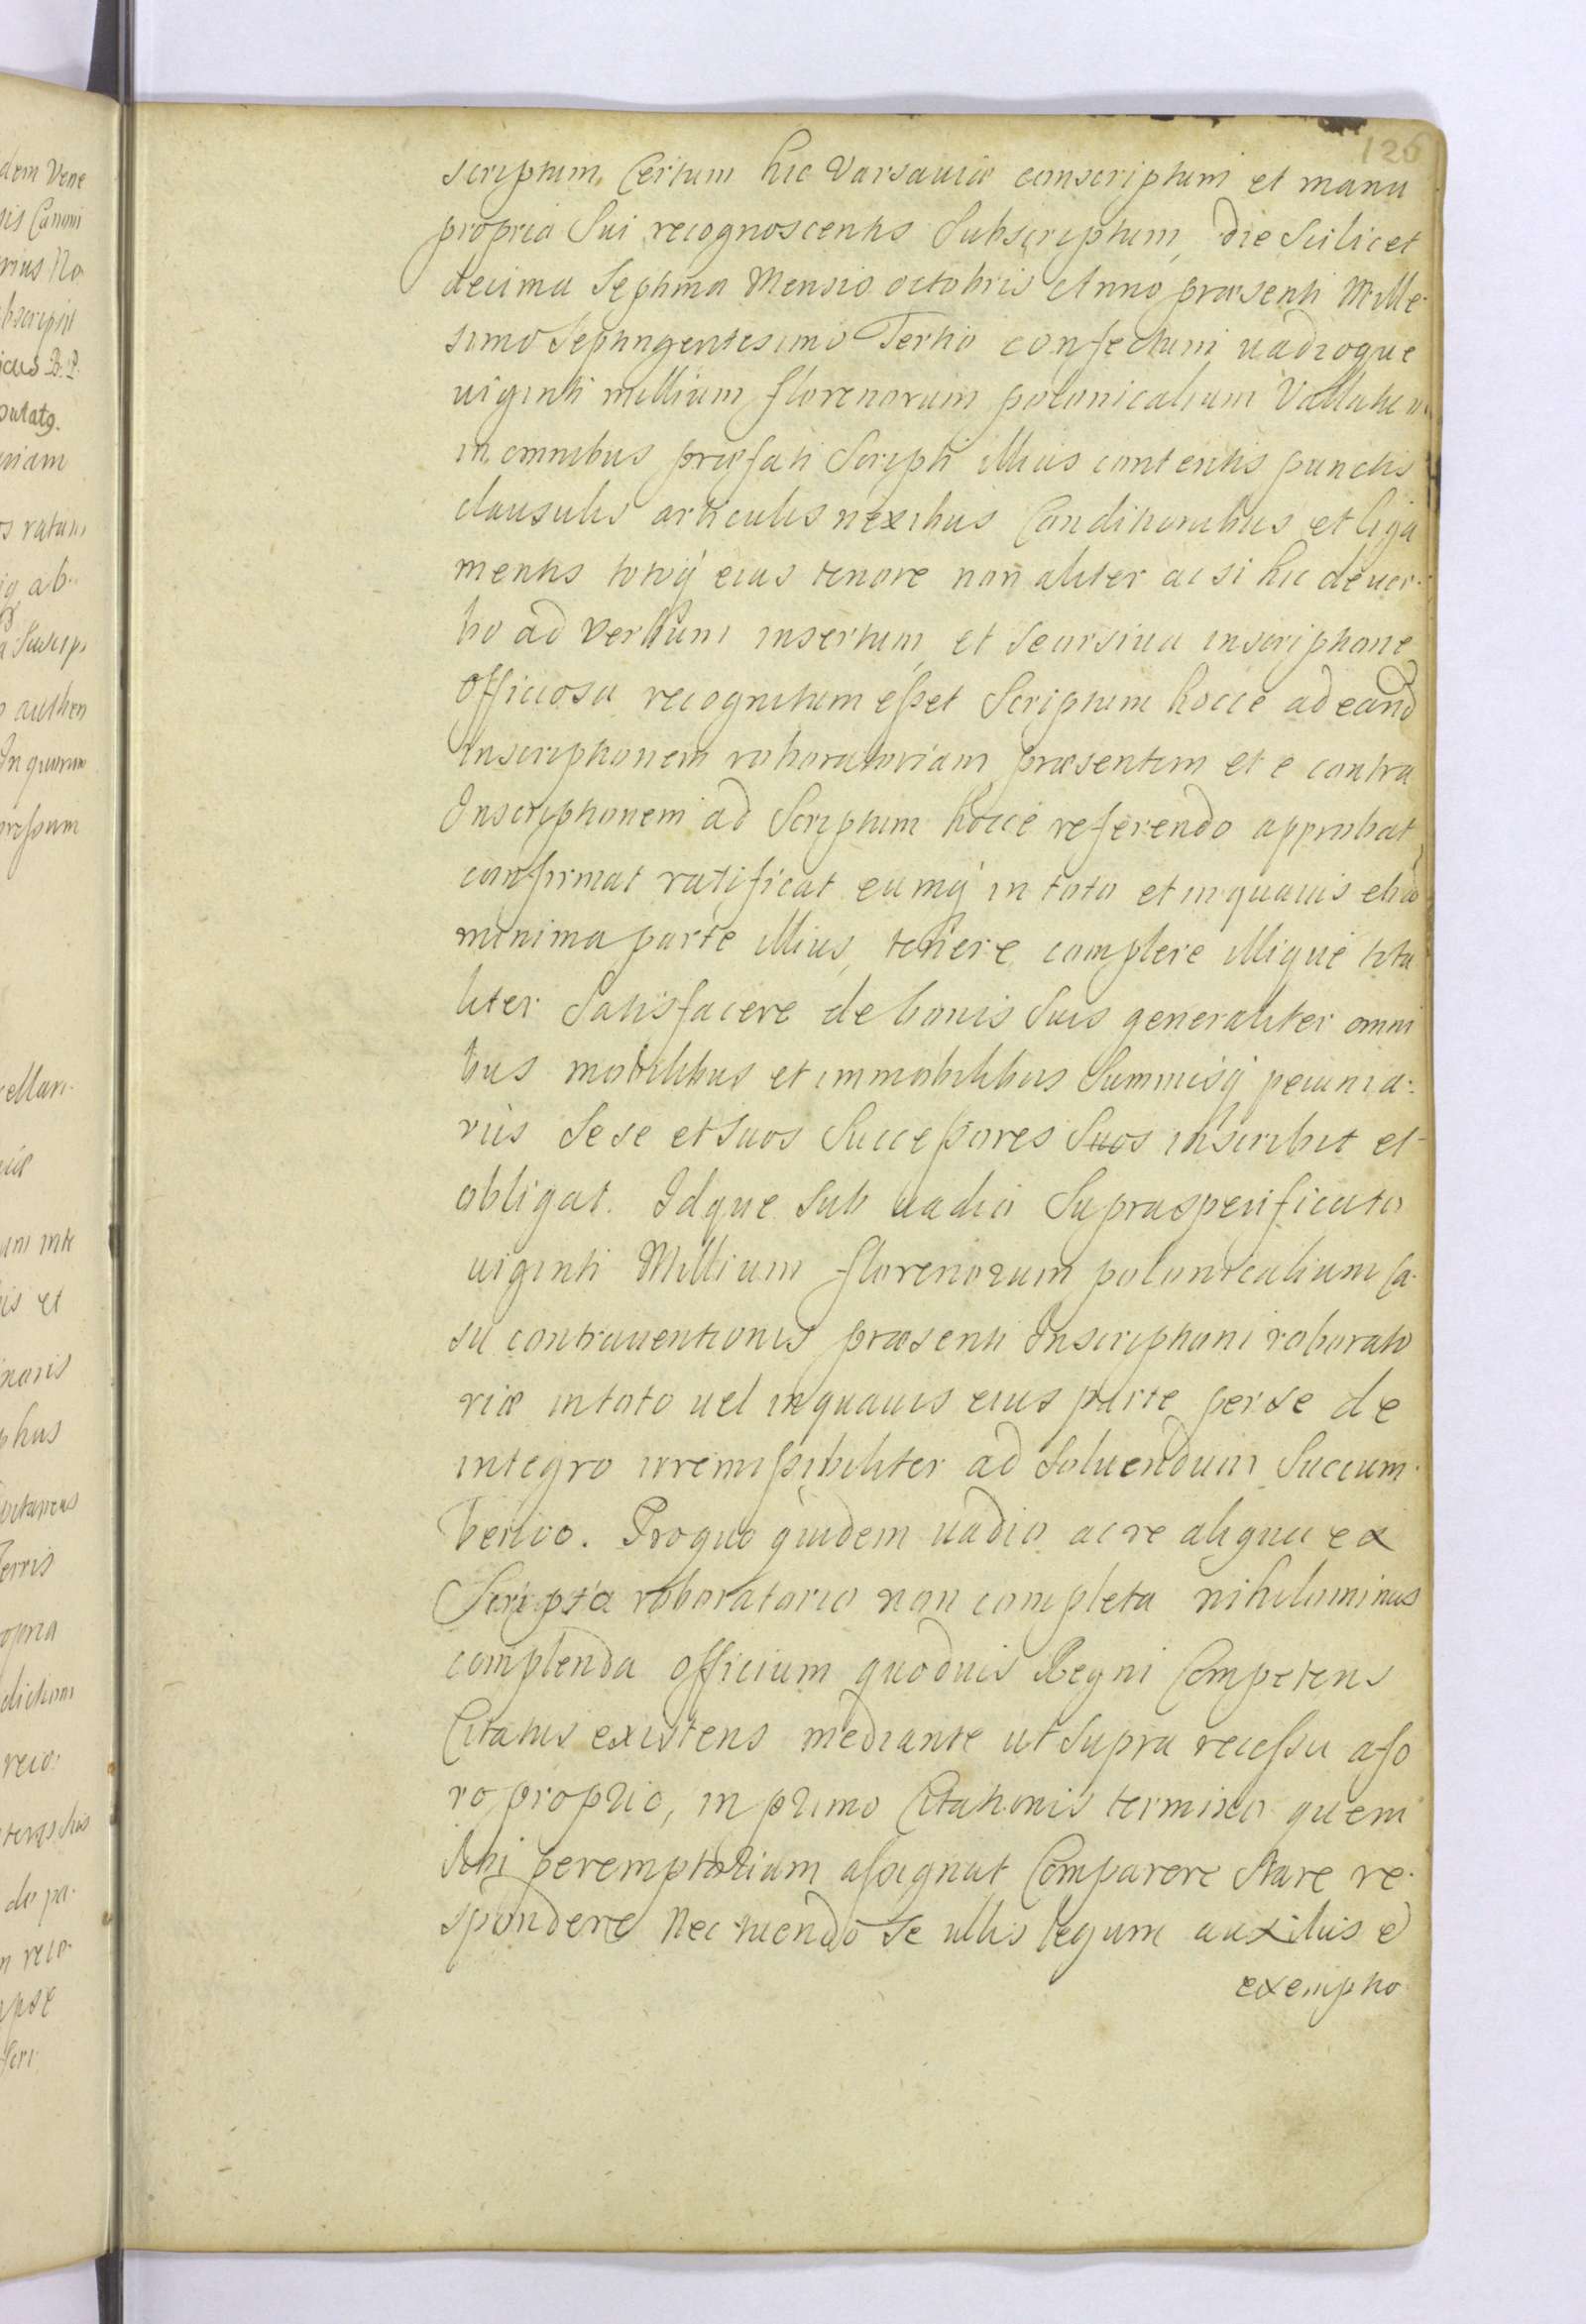 126
scriptum, Certum hic Varsaviæ conscriptum et manu
propria Sui recognoscentis Subscriptum, die Scilicet
decima Septima Mensis octobris Anno præsenti Mille-
simo Septingentesimo Tertio confectum vadioque
viginti millium florenorum polonicalium Vallatum
in omnibus præfati Scripti illius contentis punctis
clausulis articulis nexibus Conditionibus et liga
mentis totoq; eius tenore non aliter ac si hic de ver-
bo ad verbum insertum, et Seorsiva inscriptione
officiosa recognitum esset Scriptum hocce ad eand
Inscriptionem roboratoriam præsentem et e contra
Inscriptionem ad Scriptum hocce referendo approbat
confirmat ratificat eumq; in toto et in quavis etiã
minima parte illius, tenere complere illique tota
liter Satisfacere de bonis Suis generaliter omni
bus mobilibus et immobilibus Summisq; pecunia-
riis Sese et Suos Successores Suos inscribit et
obligat. Idque Sub vadio Supraspecificato
viginti Millium florenorum polonicalium Ca-
su contraventionis præsenti Inscriptioni roborato
riæ in toto vel in quavis eius parte per se de
integro irremissibiliter ad Solvendum Succum-
bendo. Pro quo quidem vadio ac re aliqua ex
Scripto roboratorio non completa nihilominus
complenda officium quodvis Regni Competens
Citatus existens mediante ut Supra recessu a fo
ro proprio, in primo Citationis termino quem
Sibi peremptorium assignat Comparere Stare re-
spondere Nec tuendo Se ullis legum auxiliis é
exemptio
dem Vene
sis Canoni
rius No
bscripsit
icus B. P.
putatg.
s ratam
ig ab-
authen
In quorum
cellari-
iæ
um inte
is et
phus
erris
opria
reco-
n reco-
ipse